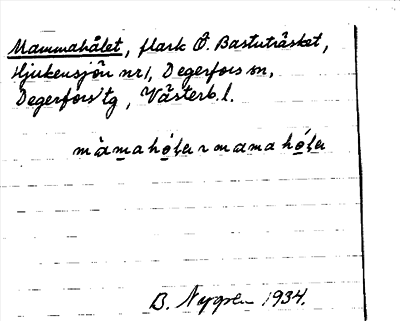 Mammahålet, flark Ö. Bastuträsket,
Hjukensjön nr 1, Degerfors sn,
Degerfors tg, Västerb. l.
B. Nygren 1934.